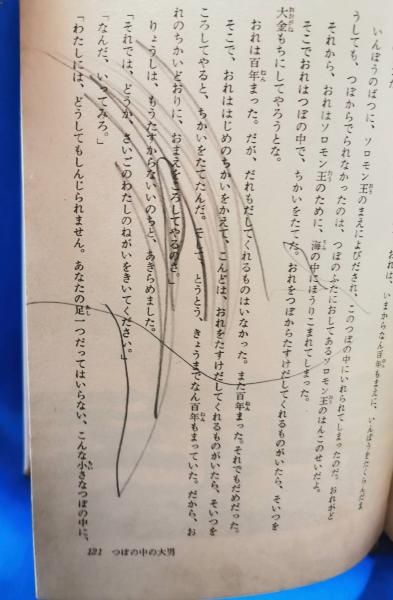 おれは、いまからなん百年もまえに、いんぼうをたくらんだ
いんぼうのばつに、ソロモン王のまえによびだされ、このつぼの中にいれられてしまったのだ。おれがど
うしても、つぼからでられなかったのは、つぼのふたにおしてあるソロモン王のはんこのせいだよ。
それから、おれはソロモン王のために、海の中にほうりこまれてしまった。
そこでおれはつぼの中で、ちかいをたてた。おれをつぼからたすけだしてくれるものがいたら、そいつを
大金もちにしてやろうとな。
おれは百年まった。だが、だれもだしてくれるものはいなかった。また百年まった。それでもだめだった。
そこで、おれははじめのちかいをかえて、こんどは、おれをたすけだしてくれるものがいたら、そいつを
ころしてやると、ちかいをたてたんだ。そして、とうとう、きょうまでなん百年もまっていた。だから、お
れのちかいどおりに、おまえをころしてやるのさ。」
りょうしは、もうたすからないいのちと、あきらめました。
「それでは、どうか、さいごのわたしのねがいをきいてください。」
「なんだ、いってみろ。」
「わたしには、どうしてもしんじられません。あなたの足一つだってはいらない、こんな小さなつぼの中に、
121 つぼの中の大男